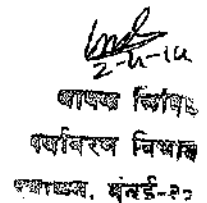 2-4-14
आवक लिपिक
पर्यावरण विभाग
मंत्रालय, मुंबई-३२